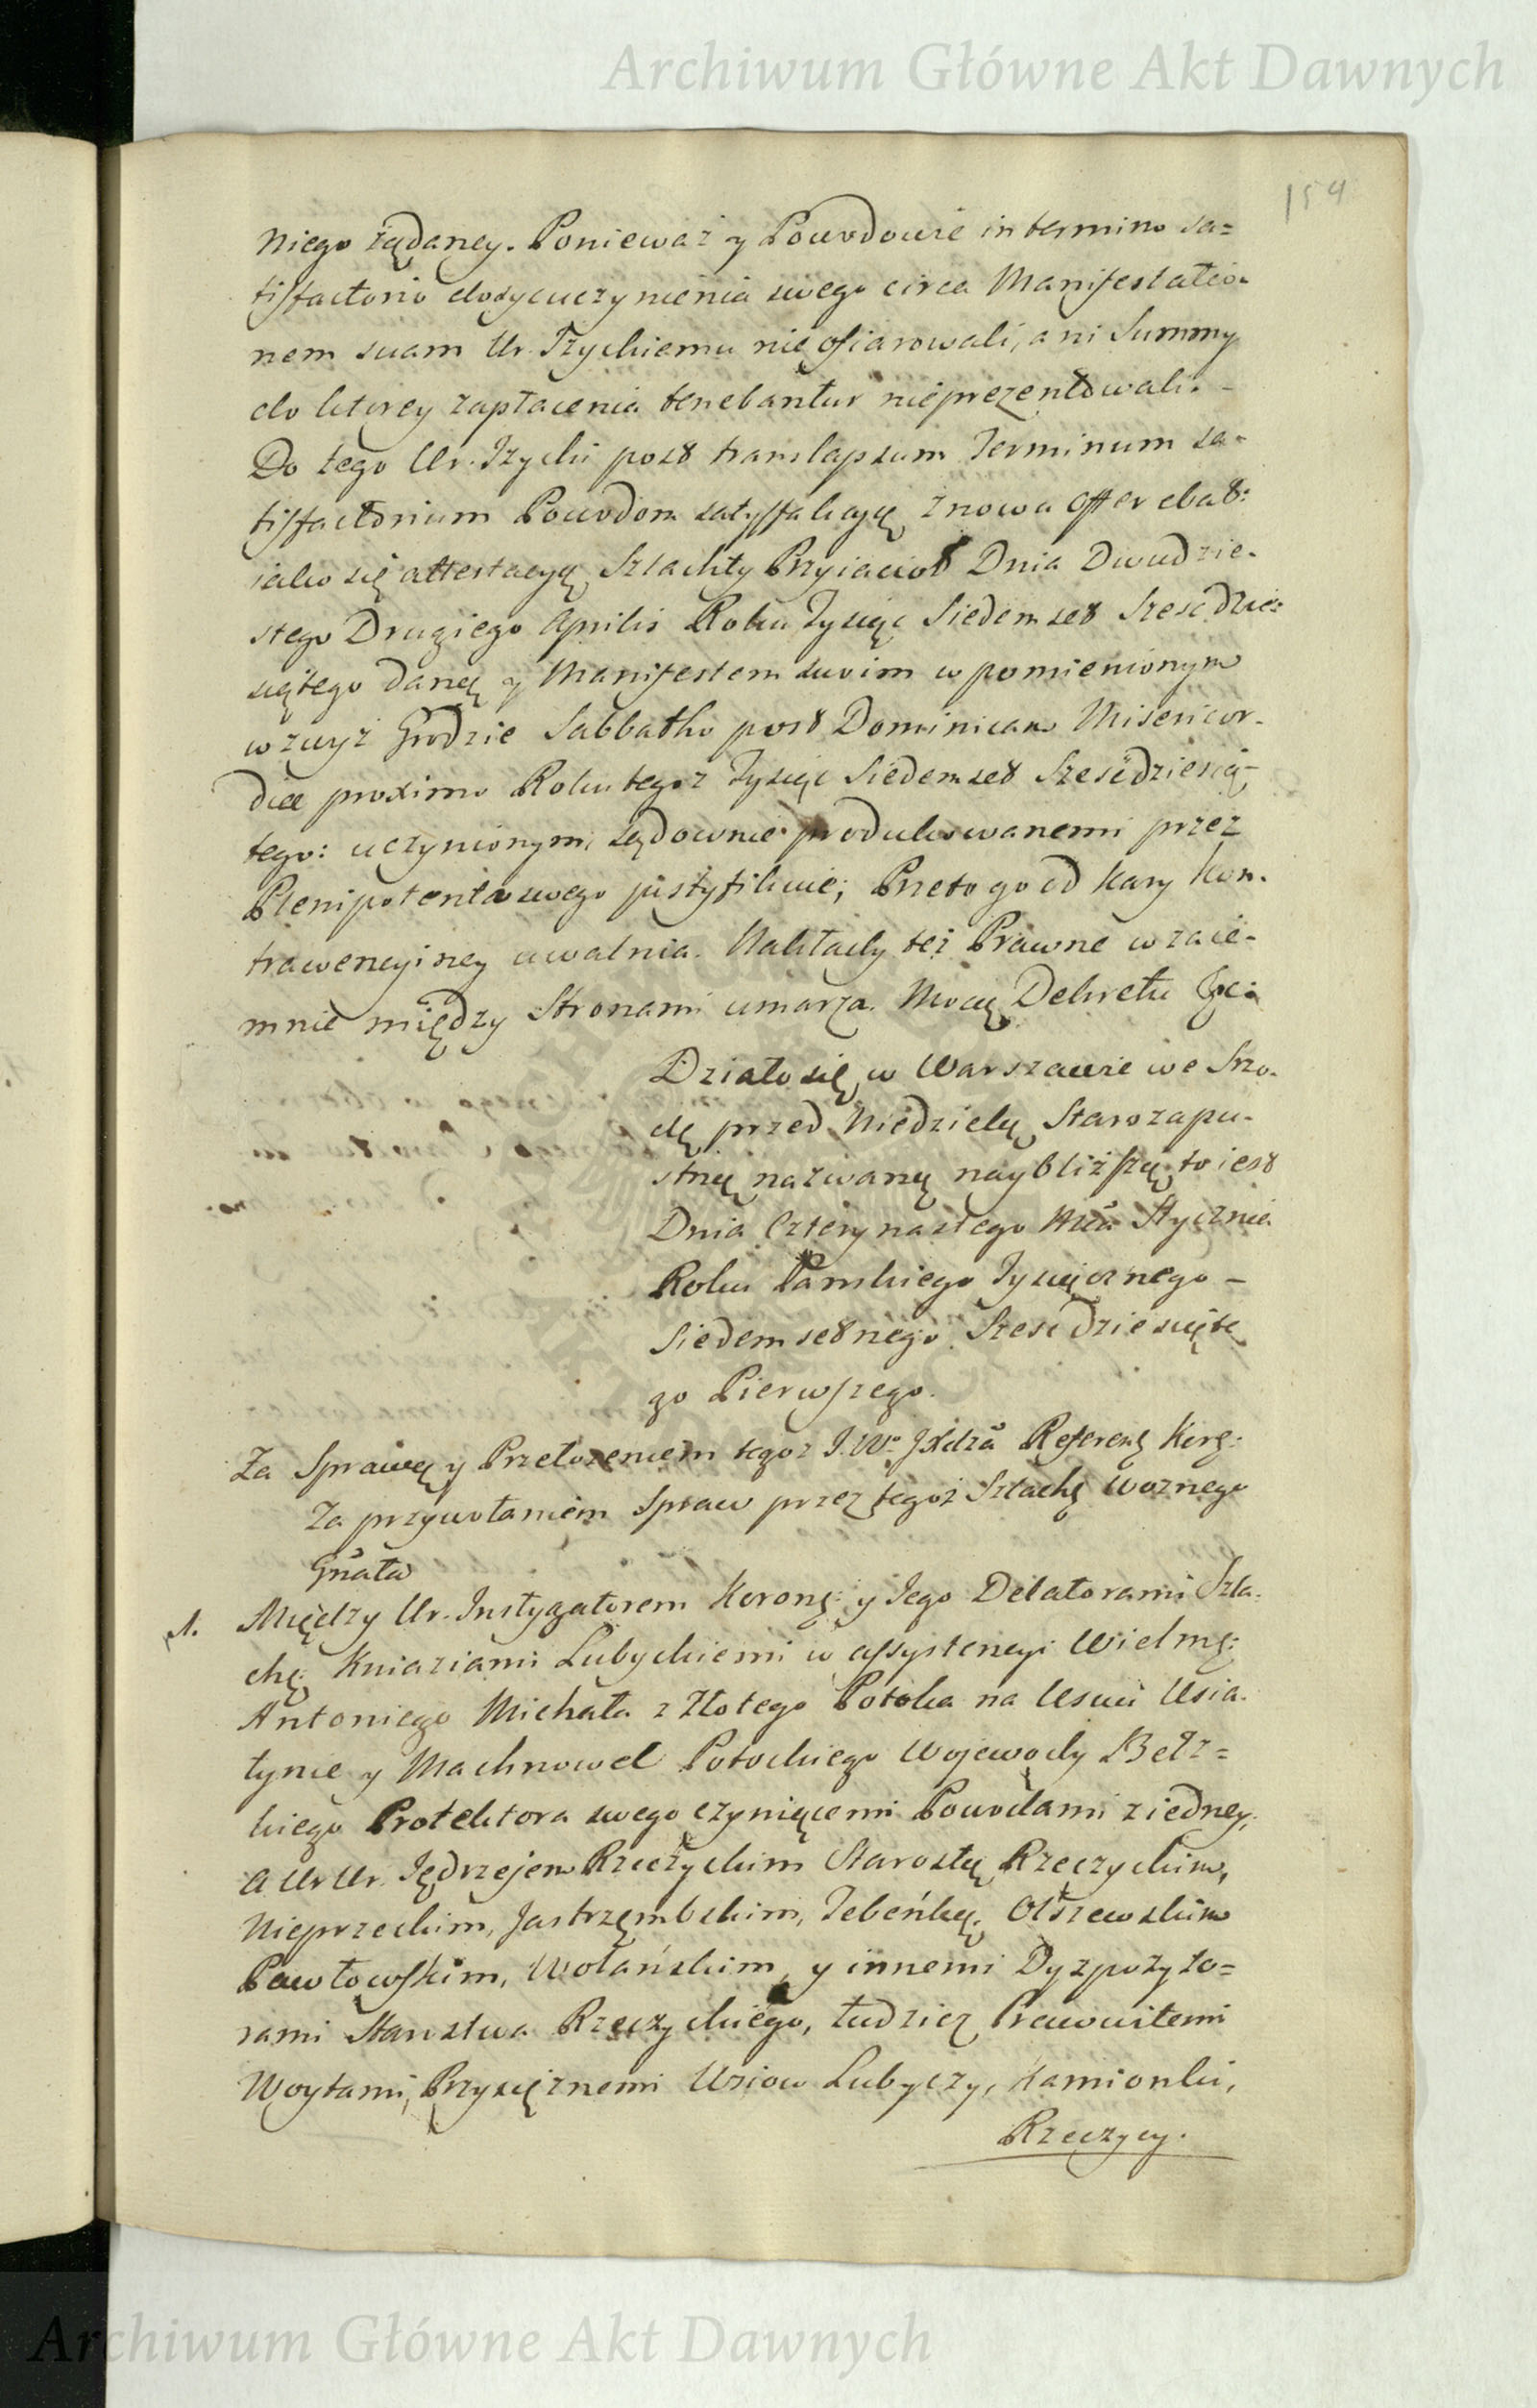 Archiwum Główne Akt Dawnych
154
niego rządaney. Ponieważ y Powodowie in termino sa=
tisfactorio dosycuczynienia swego circa Manifestatio=
nem suam Ur. Izyckiemu nie ofiarowali, ani Summy
do ktorey zapłacenia tenebantur nieprezentowali. –
Do tego Ur. Izycki post translapsum Terminum sa=
tisfactorium Powodom satysfakcyą znowu offerebat:
iako się attestacyą Szlachty Przyiacioł Dnia Dwudzie=
stego Drugiego Aprilis Roku Tysiąc Siedemset Szescdzie=
siątego daną y Manifestem swoim w pomienionym
wzwyz Grodzie Sabbatho post Dominicam Misericor=
diae proximo Roku tegoz Tysiąc Siedemset Szescdziesią=
tego: uczynionym sądownie produkowanemi przez
Plenipotenta swego justyfikuie; Przeto go od kary kon=
trawencyiney uwalnia. Nakłady też Prawne wzaie=
mnie między Stronami umarza. Mocą Dekretu &c:
Działo się w Warszawie we Srzo=
dę przed Niedzielą Starozapu=
stną nazwaną naybliższą, to iest
Dnia Czternastego Mca Stycznia
Roku Panskiego Tysiącznego –
Siedemsetnego Szescdziesiąte
go Pierwszego.
Za Sprawą y Przełożeniem tegoz J. W. JXdza Referen: Koro:
Za przywołaniem Spraw przez tegoż Szlache: Woznego
Gnata
1. Między Ur. Instygatorem Koron: y Jego Delatorami Szla=
che: Kniaziami Lubyckiemi w assystencyi Wielm:
Antoniego Michała z Złotego Potoka na Usciu Usia=
tynie y Machnowcu Potockiego Wojewody Bełz=
kiego Protektora swego czyniącemi Powodami z iedney,
A Ur Ur. Jędrzejem Rzeczyckim Starostą Rzeczyckim,
Nieprzeckim, Jastrzęmbskim, Zebeńką, Olszewskim
Pawłowskim, Wolańskim, y innemi Dyspozyto=
rami Starostwa Rzeczyckiego, tudziez Pracowitemi
Woytami, Przysiężnemi Wsiow Lubyczy, Kamionki,
Rzeczycy.
Archiwum Główne Akt Dawnych